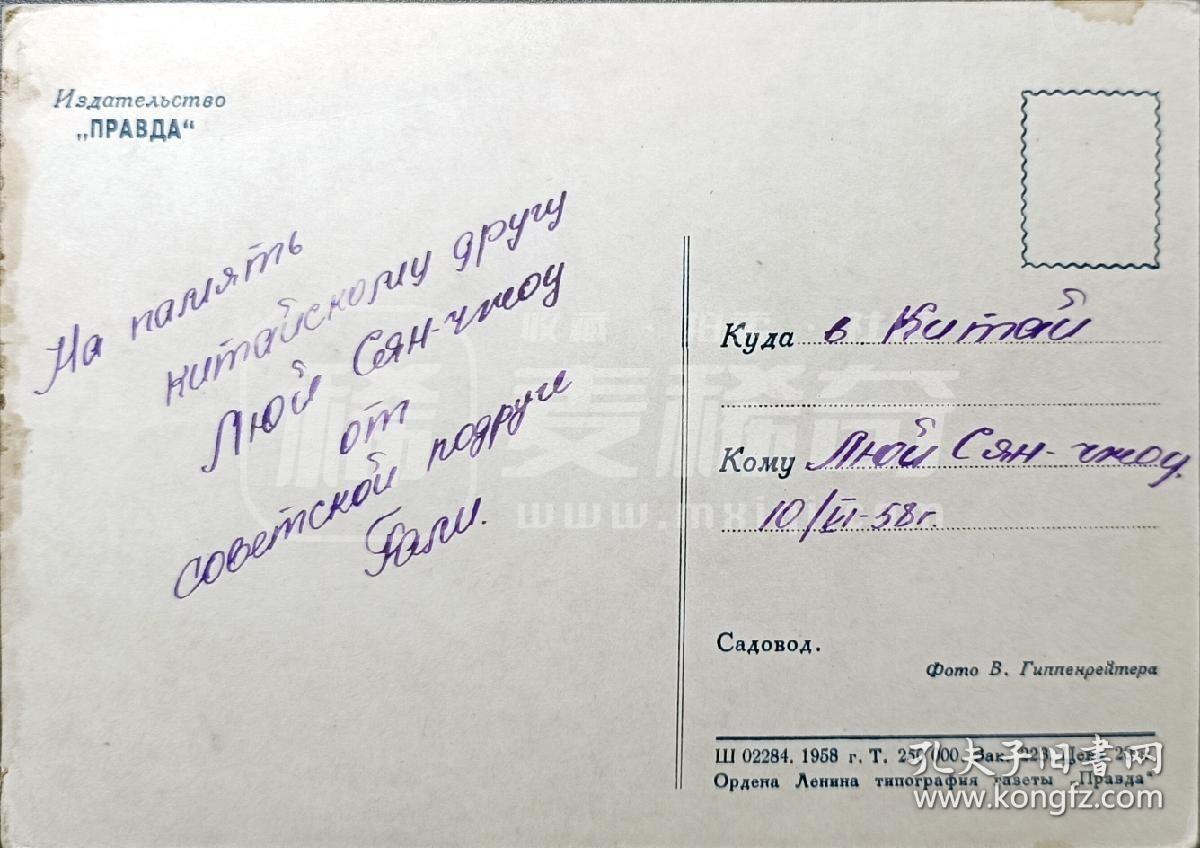 Издательство
„ПРАВДА“
На память
китайскому другу
Люй Сян-чжоу
от
советской подруги
Гали.
Куда в Китай
Кому Люй Сян-чжоу.
10/VI-58г.
Садовод.
Фото В. Гиппенрейтера
Ш 02284. 1958 г. Т. 250 000. Зак. 223.
Ордена Ленина типография газеты „Правда“
稀 麦稀奇
收藏
www.mxi
孔夫子旧书网
www.kongfz.com